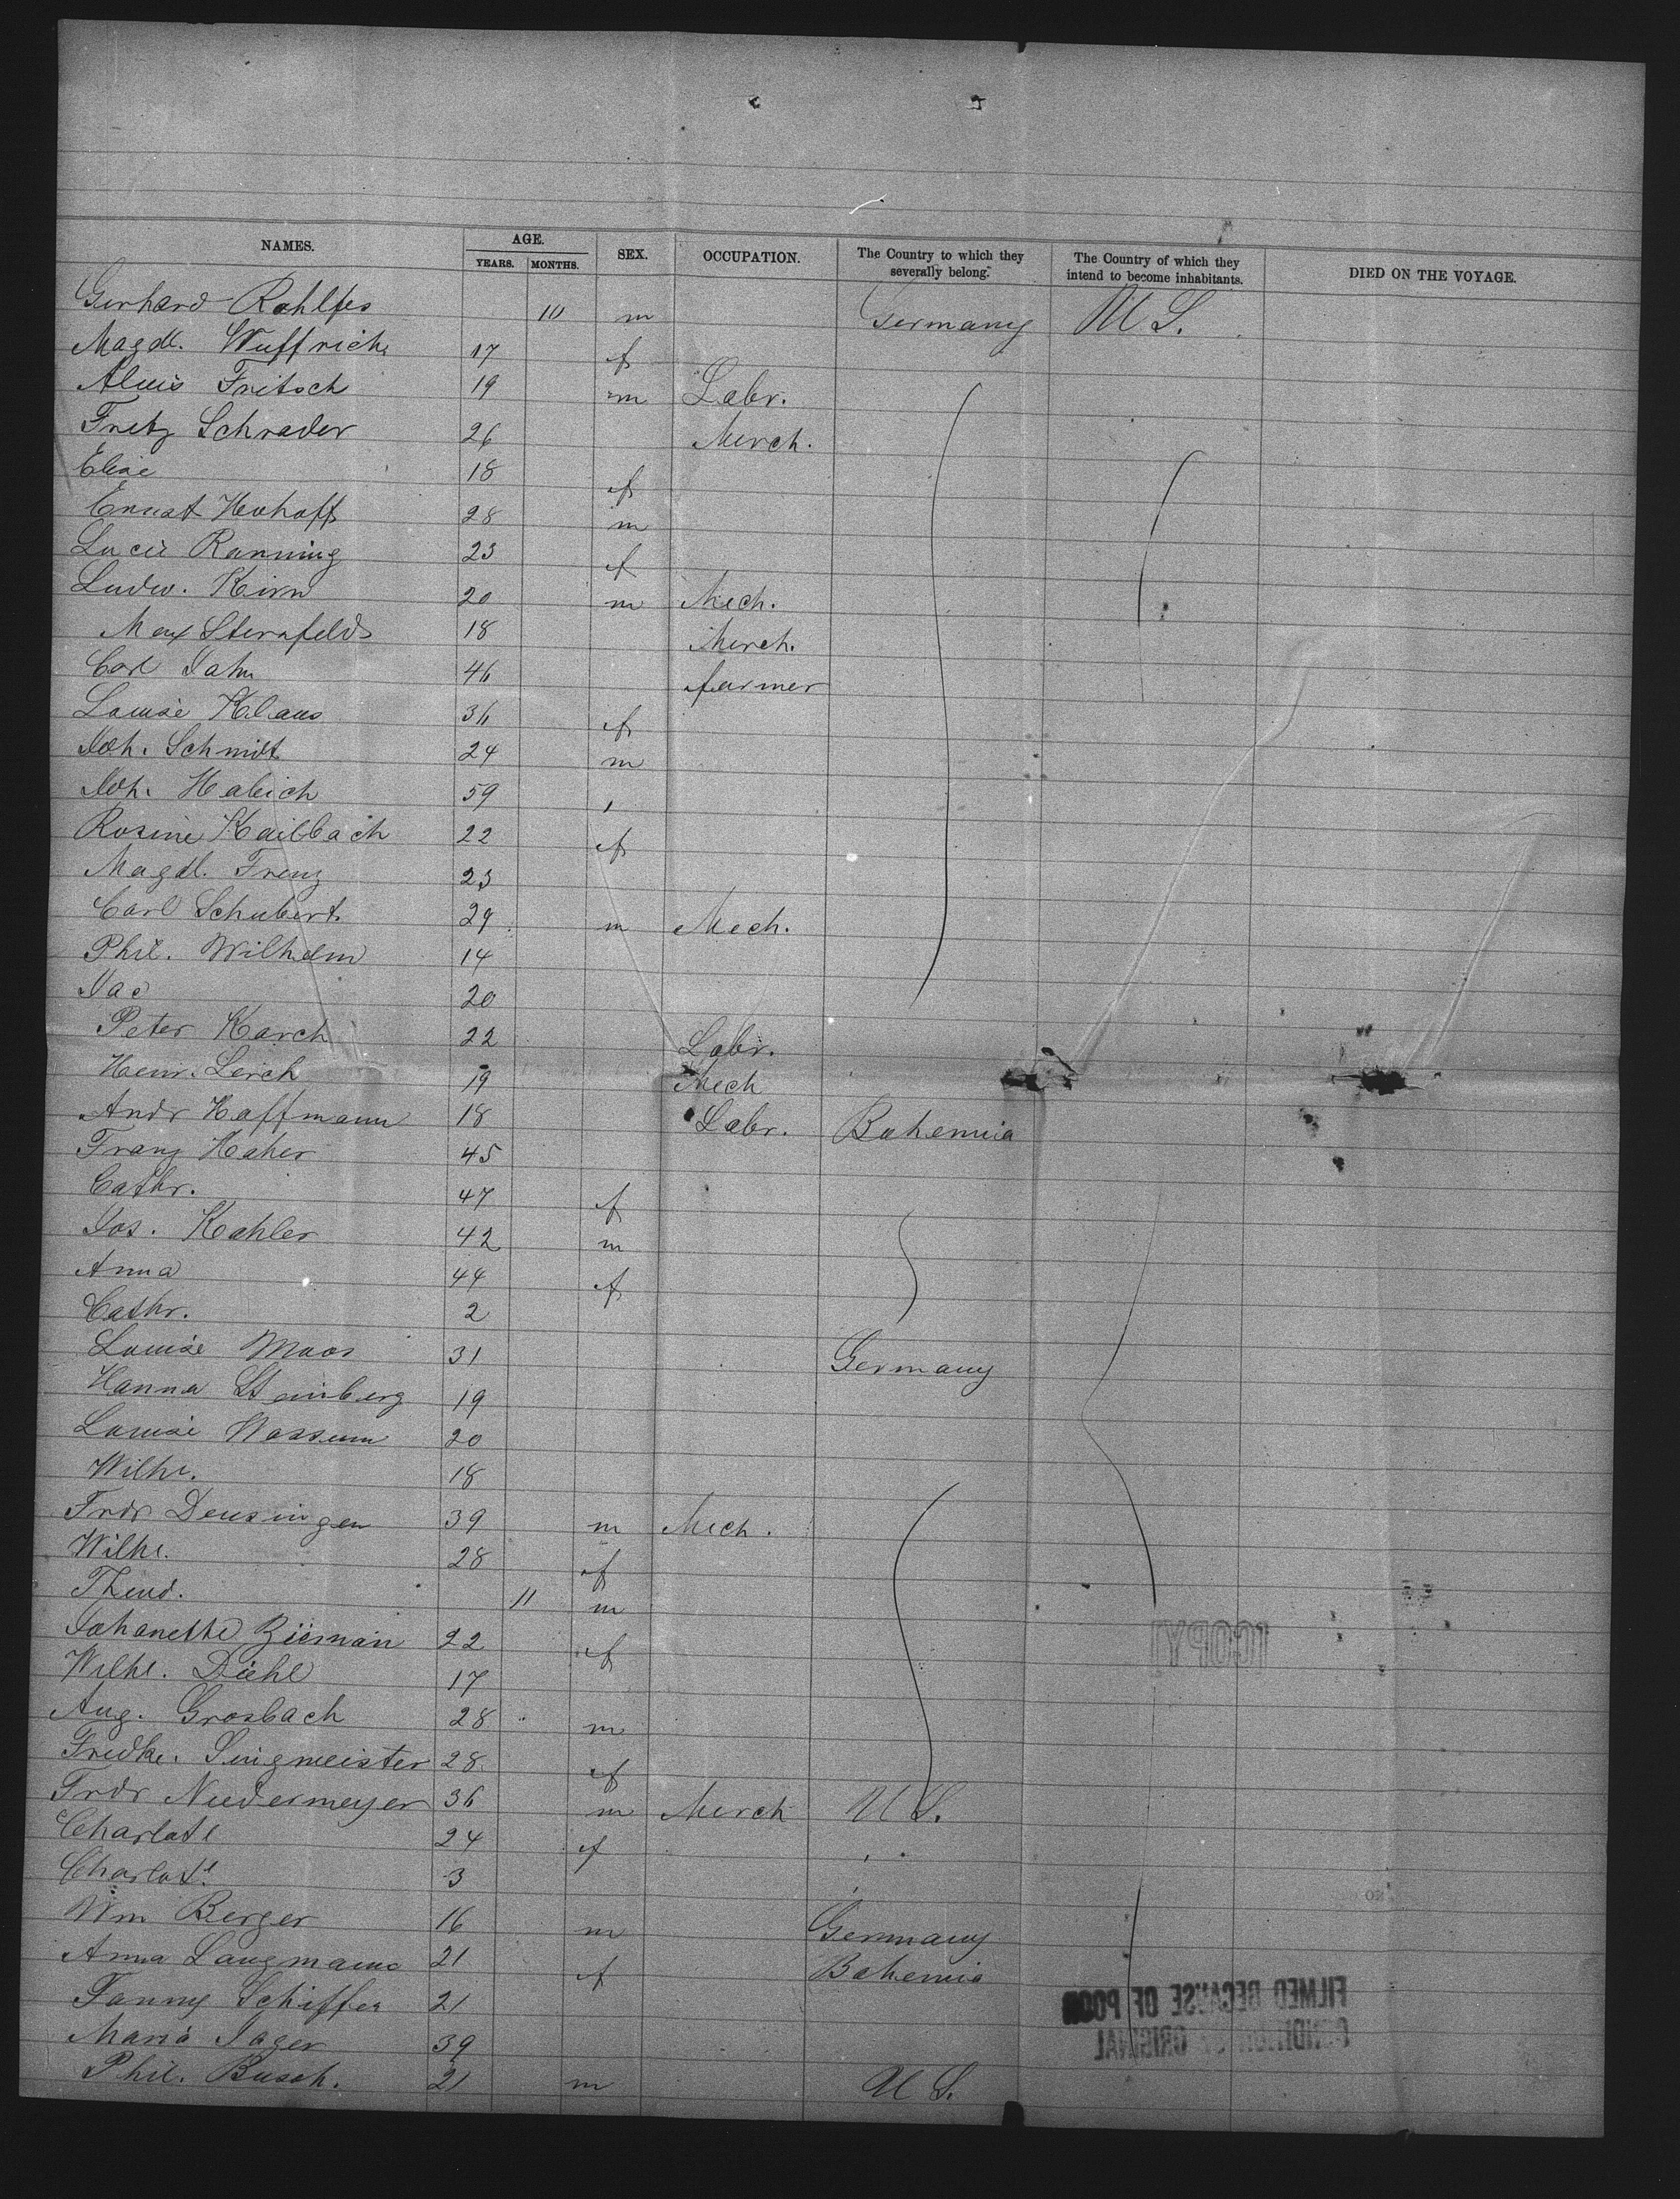 NAMES. AGE. YEARS. MONTHS. SEX. OCCUPATION. The Country to which they severally belong. The Country of which they intend to become inhabitants. DIED ON THE VOYAGE.
Gerhard Rohlfes 10 m Germany U S.
Magdl. Wuffrich 17 f
Aluis Fritsch 19 m Labr.
Fritz Schrader 26 Merch.
Elise 18 f
Ernst Hohoff 28 m
Lucie Ranning 23 f
Ludw. Kirn 20 m Mech.
Max Sternfeld 18 Merch.
Carl Jahn 46 farmer
Louise Klaus 36 f
Joh. Schmidt 24 m
Joh. Habich 59 "
Rosine Kailbach 22 f
Magdl. Frenz 23
Carl Schubert 29 m Mech.
Phil. Wilhelm 14
Jac 20
Peter Karch 22 Labr.
Henr. Lerch 19 Mech
Andr Hoffmann 18 Labr. Bohemia
Franz Haher 45
Cathr. 47 f
Jos. Kohler 42 m
Anna 44 f
Cathr. 2
Louise Moos 31 Germany
Hanna Steinberg 19
Louise Wassum 20
Wilhe. 18
Frdr Deusingen 39 m Mech.
Wilhe. 28 f
Theod. 11 m
Johanette Zissmain 22 f
Wilhl. Diehl 17
Aug. Grosbach 28 m
Fredke. Singmeister 28 f
Frdr Niedermeyer 36 m Merch U S.
Charlote 24 f "
Charlote 3 "
Wm Berger 16 m Germany
Anna Langmann 21 f Bohemia
Fanny Schiffer 21
Maria Jager 39
Phil. Busch. 21 m U S.
[COPY]
FILMED BECAUSE OF POOR
CONDITION OF ORIGINAL